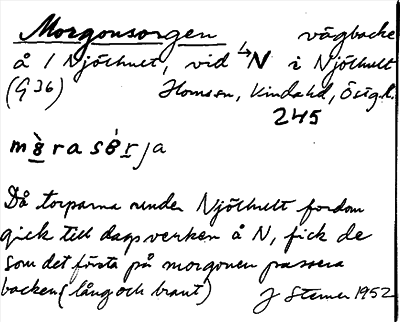 Morgonsorgen vägbacke
å 1 Njölhult, vid ↳N i Njölhult
(G 36) Homsen, Kinda hd, Östg.l.
245
mȣ̀rasȣ́rja
Då torparna under Njölhult fordom
gick till dagsverken å N, fick de
som det första på morgonen passera
backen (lång och brant) J Sterner 1952